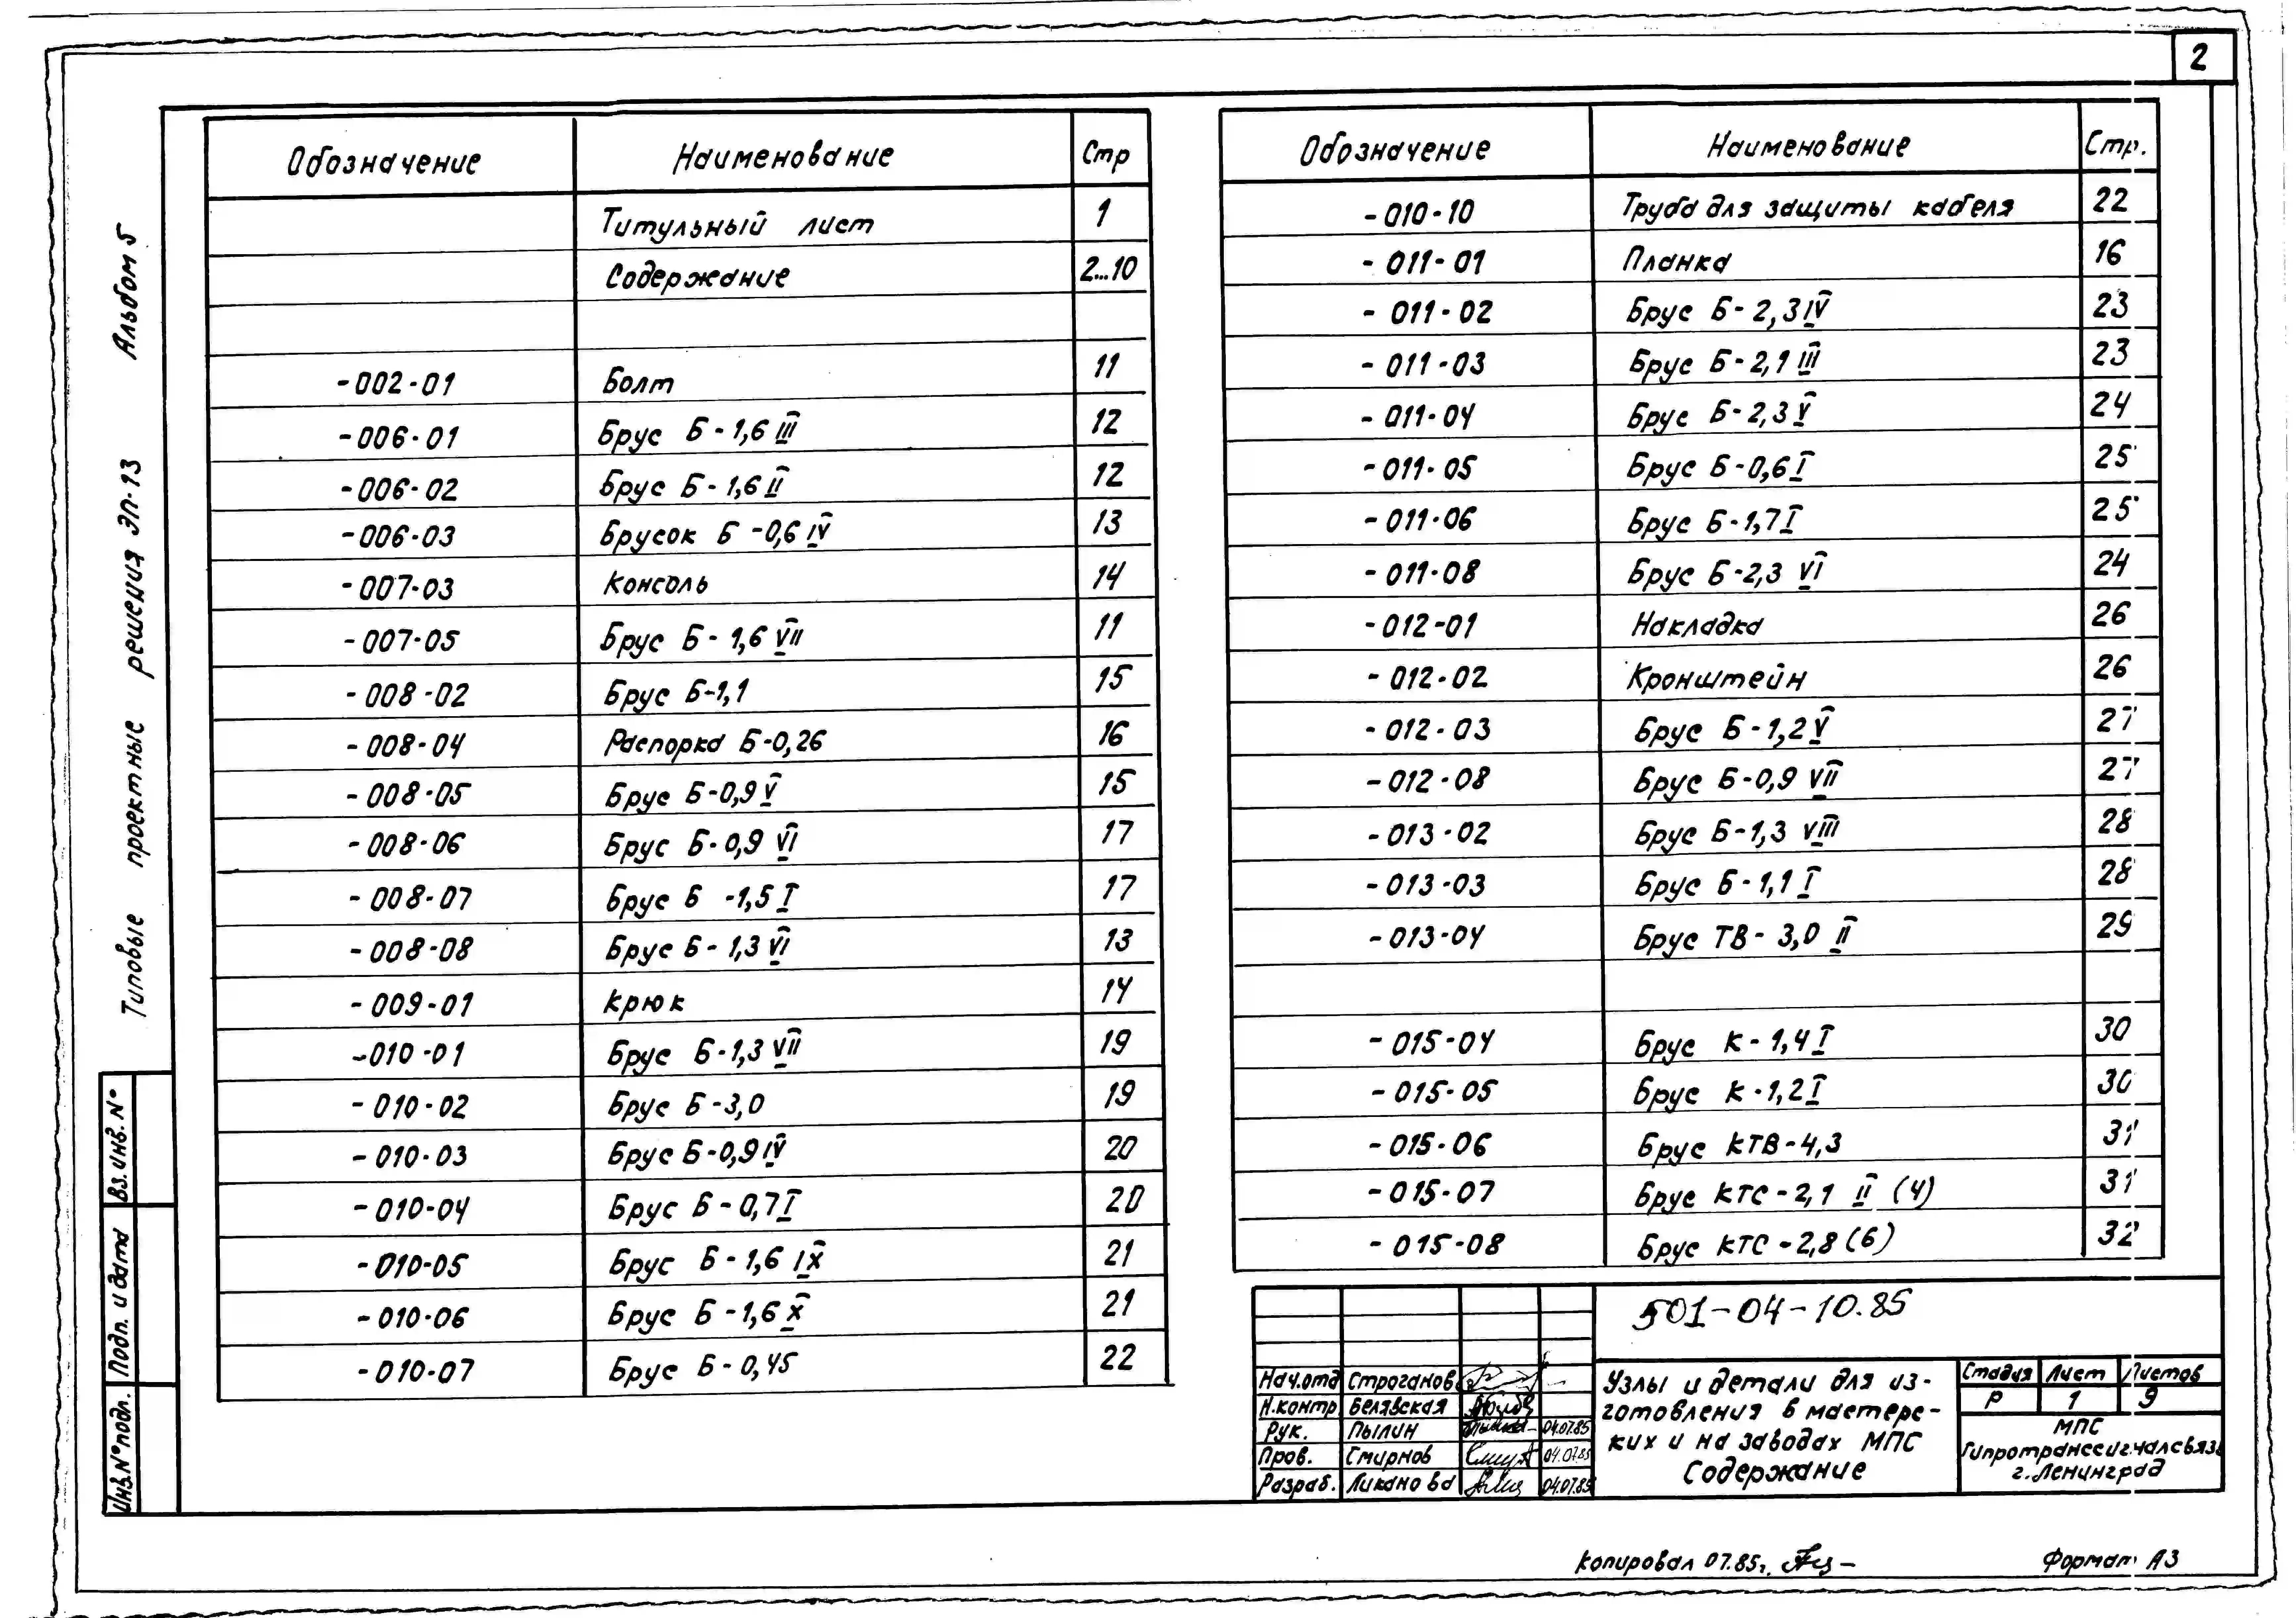 2
Альбом 5
Типовые проектные решения ЭП-13
Обозначение Наименование Стр
Титульный лист 1
Содержание 2...10
-002-01 Болт 11
-006-01 Брус Б-1,6 III 12
-006-02 Брус Б-1,6 II 12
-006-03 Брусок Б-0,6 IV 13
-007-03 Консоль 14
-007-05 Брус Б-1,6 VII 11
-008-02 Брус Б-1,1 15
-008-04 Распорка Б-0,26 16
-008-05 Брус Б-0,9 V 15
-008-06 Брус Б-0,9 VI 17
-008-07 Брус Б-1,5 I 17
-008-08 Брус Б-1,3 VI 13
-009-01 Крюк 14
-010-01 Брус Б-1,3 VII 19
-010-02 Брус Б-3,0 19
-010-03 Брус Б-0,9 IV 20
-010-04 Брус Б-0,7 I 20
-010-05 Брус Б-1,6 IX 21
-010-06 Брус Б-1,6 X 21
-010-07 Брус Б-0,45 22
Обозначение Наименование Стр.
-010-10 Труба для защиты кабеля 22
-011-01 Планка 16
-011-02 Брус Б-2,3 IV 23
-011-03 Брус Б-2,1 III 23
-011-04 Брус Б-2,3 V 24
-011-05 Брус Б-0,6 I 25
-011-06 Брус Б-1,7 I 25
-011-08 Брус Б-2,3 VI 24
-012-01 Накладка 26
-012-02 Кронштейн 26
-012-03 Брус Б-1,2 V 27
-012-08 Брус Б-0,9 VII 27
-013-02 Брус Б-1,3 VIII 28
-013-03 Брус Б-1,1 I 28
-013-04 Брус ТВ-3,0 II 29
-015-04 Брус К-1,4 I 30
-015-05 Брус К-1,2 I 30
-015-06 Брус КТВ-4,3 31
-015-07 Брус КТС-2,1 II (4) 31
-015-08 Брус КТС-2,8 (6) 32
Вз.инв.№
Подп. и дата
Инв.№подл.
501-04-10.85
Нач.отд Строганов
Н.контр Белявская
Рук. Пылин 04.07.85
Пров. Смирнов 04.07.85
Разраб. Ликанова 04.07.85
Узлы и детали для из-
готовления в мастерс-
ких и на заводах МПС
Содержание
Стадия Лист Листов
Р 1 9
МПС
Гипротранссигналсвязь
г.Ленинград
Копировал 07.85г.
Формат А3